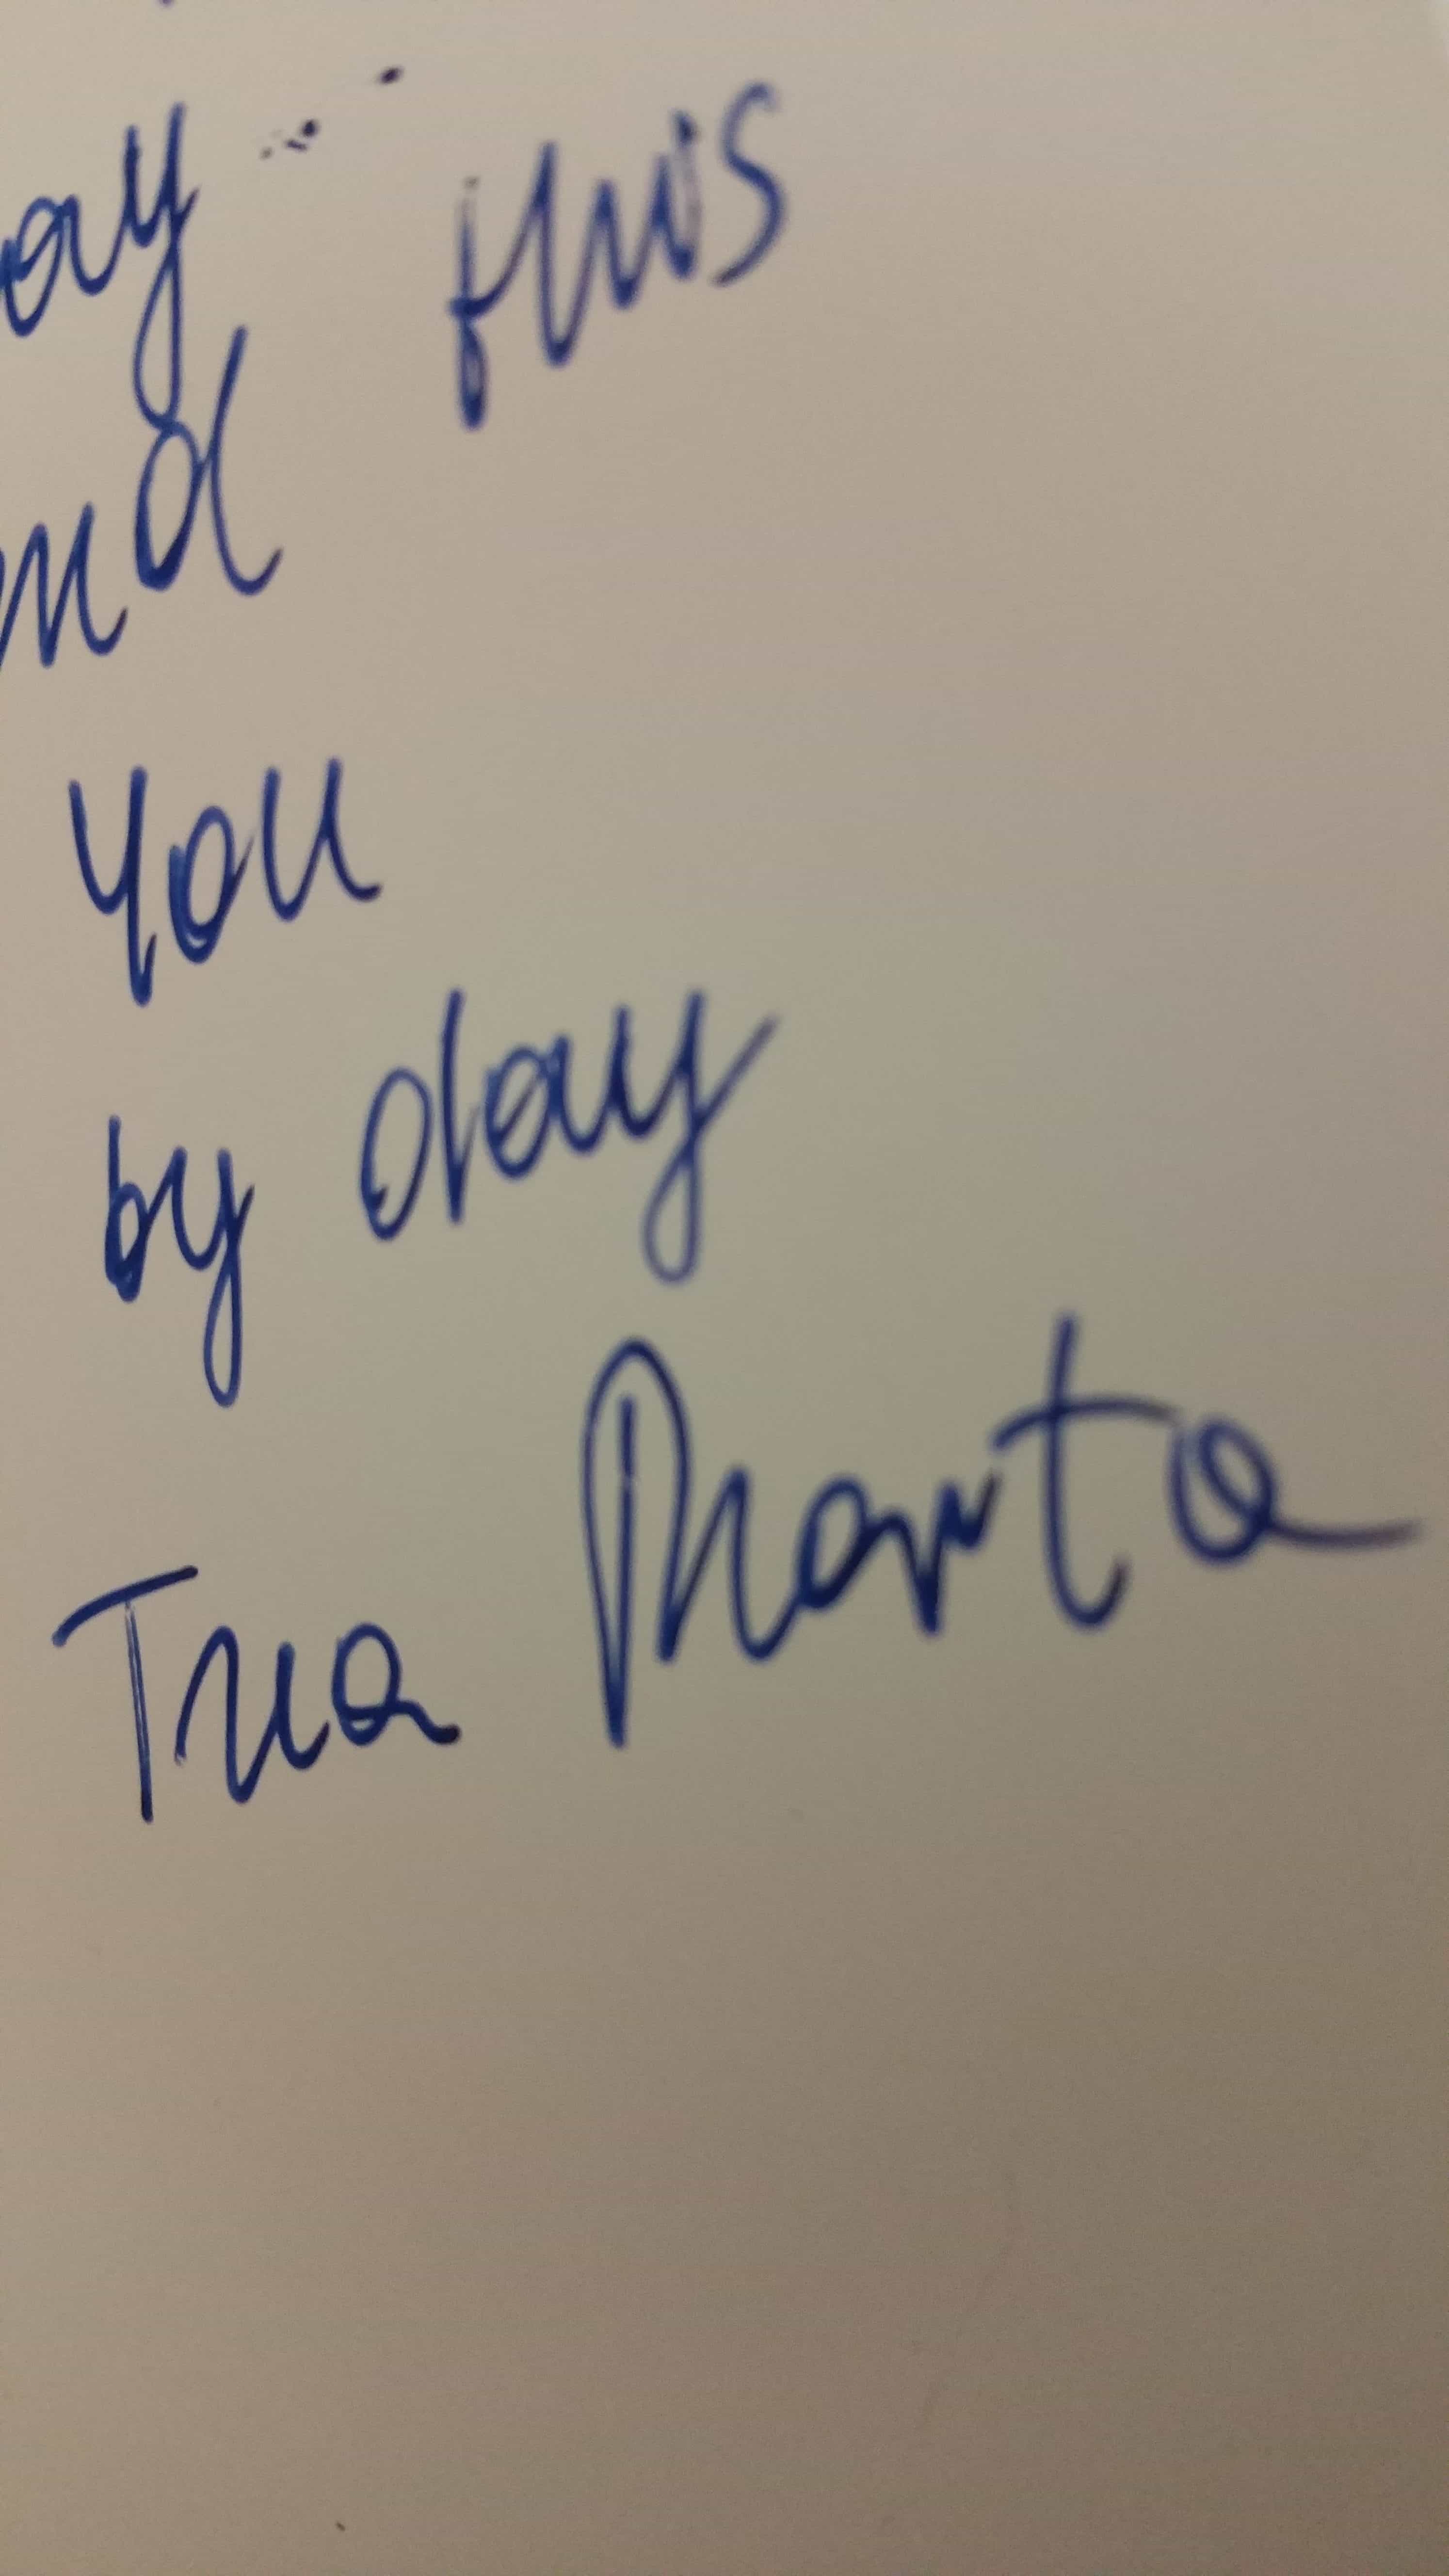 ay this
nd
you
by day
Tua Marta